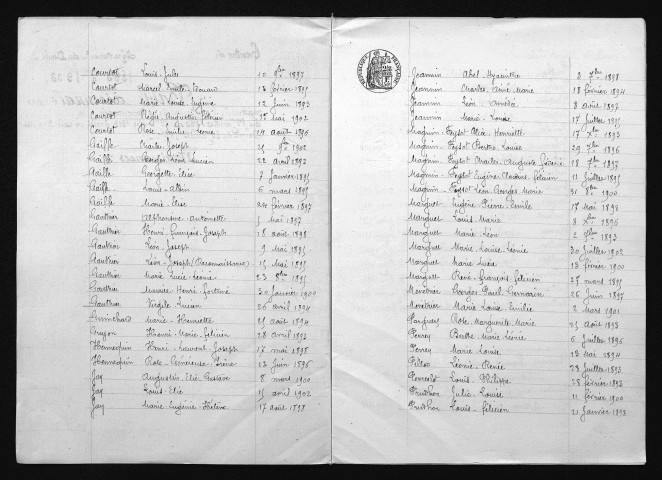 Courlet Louis-Jules 10 9bre 1897
Courtot Marcel Emile Edouard 13 février 1895
Courtot Marie-Louise Eugénie 12 Juin 1903
Courtot Régis-Augustin-Félicien Mai 1902
Courtot Rose-Emilie-Léonie 24 août 1896
Gaiffe Charles-Joseph 9bre 1902
Gaiffe Georges Léon Lucien 22 avril 1893
Gaiffe Georgette-Elise 7 Janvier 1895
Gaiffe Louis-Albin 6 mars 1895
Gaiffe Marie-Elise 24 février 1897
Gauthier Alphonsine-Antoinette 5 mai 1897
Gauthier Henri François-Joseph 18 août 1898
Gauthier Léon-Joseph 9 Mai 1895
Gauthier Léon-Joseph (Reconnaissance) 15 Mai 1895
Gauthier Marie Lucie-Léonie 23 1895
Gauthier Maurice-Henri-Fortuné 30 Janvier 1900
Gauthier Virgile Lucien 26 avril 1894
Guinchard Marie-Henriette 25 août 1894
Henri-Marie-Félicien 28 avril 1893
Hennequin Henri-Laurent Joseph 17 mai 1898
Hennequin Rose-Généreuse-Irène 13 Juin 1896
Jay Augustin-Elie Gustave 8 mars 1900
Jay Louis-Elie 15 avril 1902
Jay Marie Eugénie-Hélène 17 août 1898
REPUBLIQUE FRANCAISE
Jeannin Abel-Hyacinthe 2 7bre 1898
Jeannin Charles Aimé-Marie 18 février 1894
Jeannin Léon Amédée 3 août 1897
Jeannin Marie-Louise 17 Juillet 1895
Magnin-Feysot Alix-Henriette 17 Xbre 1893
Magnin-Feysot Berthe-Louise 29 7bre 1896
Magnin-Feysot Charles-Auguste 18 7bre 1897
Magnin-Feysot Eugène Claudius-Félicien 11 Juillet 1895
Magnin-Feysot Léon Georges Marie 31 8bre 1900
Marguet Eugène Pierre-Emile 17 Mai 1898
Marguet Louis-Marie 8 Xbre 1896
Marguet Marie Léon 2 9bre 1893
Marguet Marie-Louise-Léonie 30 Juillet 1902
Marguet Marie Lucie 13 février 1900
Marguet René-François-Félicien 25 mars 1895
Georges Paul Germain 26 Juin 1895
Marie Louise Emilie 2 Mars 1901
Rose-Marguerite-Marie 23 août 1898
Perrey Berthe Marie Léonie 6 Juillet 1896
Perrey Marie Louise 13 Mai 1894
Léonie-Renée 28 Juillet 1893
Louis-Philippe 28 février 1893
Prudhon Julie-Louise 11 février 1900
Prudhon Louis-Félicien 21 Janvier 1893